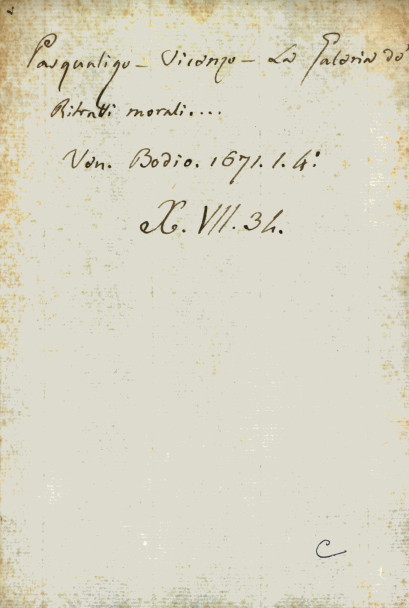 Pasqualigo - Vicenzo - La Galeria de'
Ritratti morali....
Ven. Bodio. 1671. 1. 4°.
X. VII. 34.
C